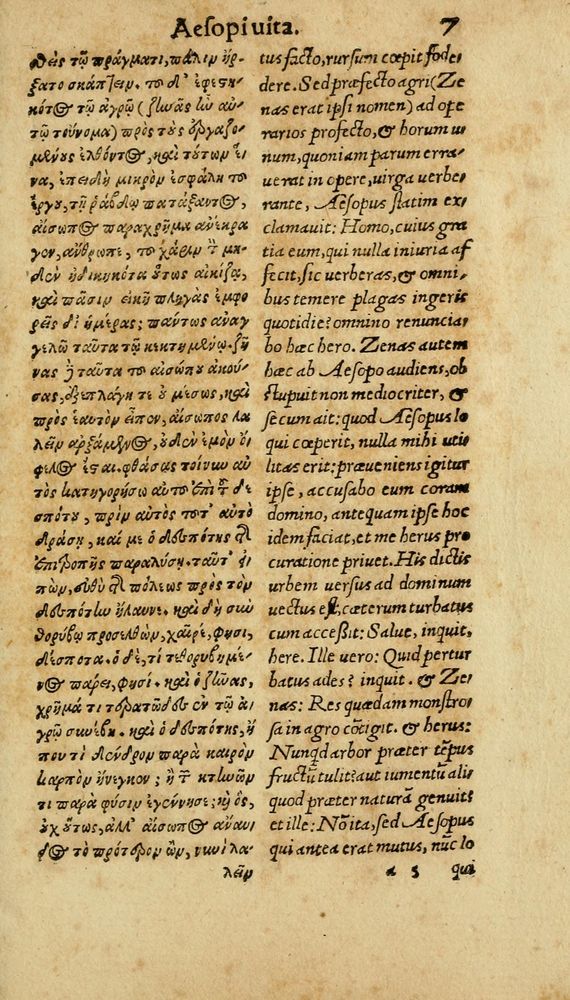 Aesopi vita. 7
θεὶς τῷ πράγματι, πάλιν ἤρ-
ξατο σκάπτειν. τοῦ δ' ἐφεστη-
κότος τῷ ἀγρῷ (ζηνᾶς ἦν αὐ-
τῷ τοὔνομα) πρὸς τοὺς ἐργαζο-
μένους ἐλθόντος, καὶ τούτων ἕ-
να, ἐπειδὴ μικρὸν ἐσφάλη τοῦ
ἔργου, τῇ ῥάβδῳ πατάξαντος,
αἴσωπος παραχρῆμα ἀνέκρα-
γεν, ἄνθρωπε, τοῦ χάριν τὸν μη-
δὲν ἠδικηκότα οὕτως αἰκίζῃ,
καὶ πᾶσιν εἰκῆ πληγὰς ἐμφο-
ρεῖς δι' ἡμέρας; πάντως ἀναγ
γελῶ ταῦτα τῷ κεκτημένῳ. ζη
νᾶς δὲ ταῦτα τοῦ αἰσώπου ἀκού-
σας, ἐξεπλάγη τε οὐ μέσως, καὶ
πρὸς ἑαυτὸν εἶπεν, αἴσωπος λα
λεῖν ἀρξάμενος, οὐδὲν ἐμοὶ ὄ-
φελος ἔσται. φθάσας τοίνυν αὐ
τὸς κατηγορήσω αὐτοῦ ἐπὶ τοῦ δε-
σπότου, πρὶν αὐτὸς τοῦτ' αὐτὸ
δράσῃ, καί με ὁ δεσπότης τῆς
ἐπιτροπῆς παραλύσῃ. ταῦτ' εἰ-
πὼν, εὐθὺ τῆς πόλεως πρὸς τὸν
δεσπότην ἤλαυνε. καὶ δὴ σὺν
θορύβῳ προσελθὼν, χαῖρε, φησὶ,
δέσποτα. ὁ δὲ, τί τεθορυβημέ-
νος πάρει, φησί. καὶ ὁ ζηνᾶς,
χρῆμά τι τερατῶδες ἐν τῷ ἀ-
γρῷ συνέβη. καὶ ὁ δεσπότης, ἤ
που τὶ δένδρον παρὰ καιρὸν
καρπὸν ἤνεγκεν; ἢ τῶν κτηνῶν
τι παρὰ φύσιν ἐγέννησε; καὶ ὃς,
οὐχ οὕτως, ἀλλ' αἴσωπος ἄναυ-
δος τὸ πρότερον ὢν, νυνὶ λα-
λεῖν
tus facto, rursum cœpit fode-
dere. Sed præfecto agri (Ze
nas erat ipsi nomen) ad ope
rarios profecto, & horum u-
num, quoniam parum erra-
uerat in opere, uirga verbe-
rante, Aesopus statim ex-
clamauit: Homo, cuius gra
tia eum, qui nulla iniuria af
fecit, sic verberas, & omni-
bus temere plagas ingeris
quotidie? omnino renuncia-
bo hæc hero. Zenas autem
hæc ab Aesopo audiens, ob
stupuit non mediocriter, &
secum ait: quod Aesopus lo
qui cœperit, nulla mihi uti-
litas erit: præueniens igitur
ipse, accusabo eum coram
domino, antequam ipse hoc
idem faciat, et me herus pro
curatione priuet. His dictis
urbem versus ad dominum
vectus est, cæterum turbatus
cum acceßit: Salue, inquit,
here. Ille uero: Quid pertur
batus ades? inquit. & Ze-
nas: Res quædam monstro-
sa in agro cōtigit. & herus:
Nunqd arbor præter tēpus
fructū tulit? aut iumentū ali-
quod præter naturā genuit?
et ille: Nō ita, sed Aesopus
qui antea erat mutus, nūc lo
a 5 qui